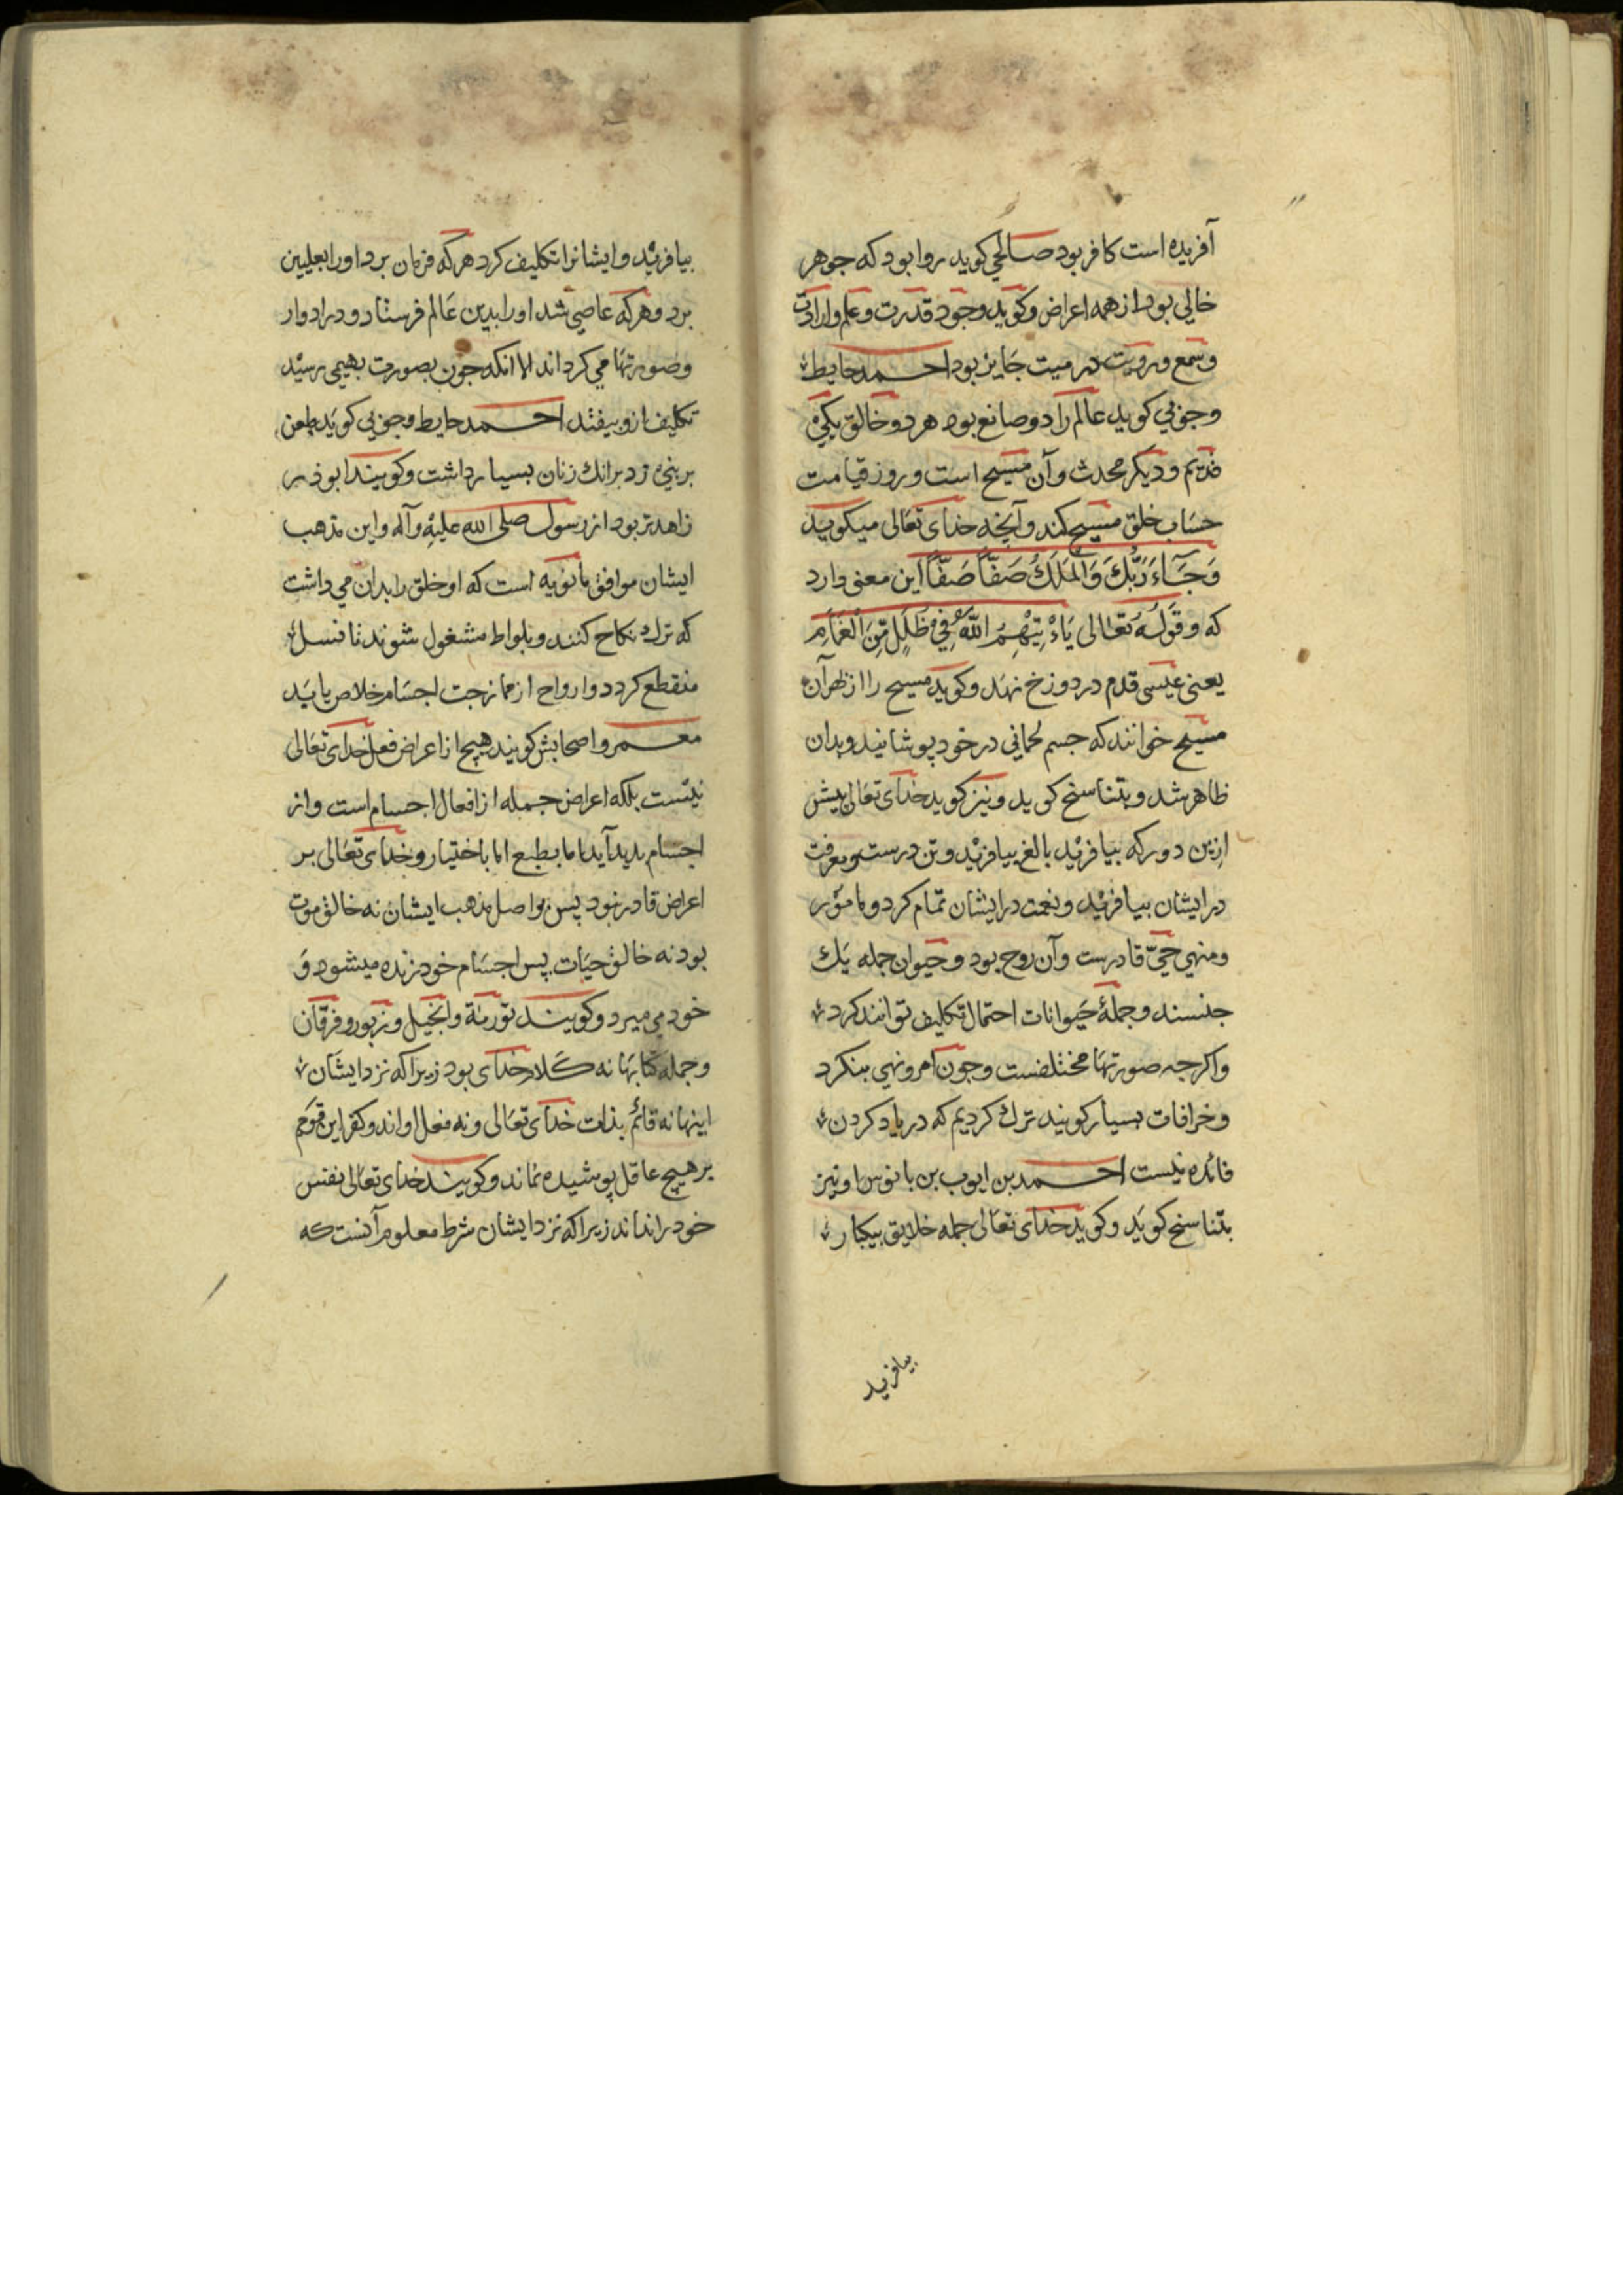 آفریده است کافر بود صالحی کوید روا بود که جوهر
خالی بود از همه اعراض و کوید وجود قدرت و علم و ارادت
و سمع و رویت در میت جایز بود احمد حایط
و جوبی کوید عالم را دو صانع بود هر دو خالق یکی
قدیم و دیکر محدث و آن مسیح است و روز قیامت
حساب خلق مسیح کند و آنچه خدای تعالی میکوید
وَجَآءَ رَبُّكَ وَالْمَلَكُ صَفّاً صَفّاً این معنی دارد
که و قوله تعالی یَاْتِیَهُمُ اللّٰهُ فِي ظُلَلٍ مِّنَ الْغَمَامِ
یعنی عیسی قدم در دوزخ نهد و کوید مسیح را از بهر آن
مسیح خوانند که جسم لحمانی در خود پوشانید و بدان
ظاهر شد و بتناسخ کوید و نیز کوید خدای تعالی پیش
ازین دور که بیافرید بالغ بیافرید و تن درست و معرفت
در ایشان بیافرید و نعمت در ایشان تمام کرد و مامور
و منهی حیّ قادرست و آن روح بود و حیوان جمله یک
جنسند و جملهٔ حیوانات احتمال تکلیف توانند کرد
و اکرجه صورتها مختلفست و جون امر و نهی بنکرد
و خرافات بسیار کویند ترک کردیم که در یاد کردن
فائده نیست احمد بن ایوب بن بانوس او نیز
بتناسخ کوید و کوید خدای تعالی جمله خلایق بیکبار
بیافرید
بیافرید و ایشانرا تکلیف کرد هرکه فرمان برد اورا بعلیین
برد و هرکه عاصی شد اورا بدین عالم فرستاد و در ادوار
و صورتها می کرداند الا انکه جون بصورت بهیمی رسید
تکلیف ازو بیفتد احمد حایط و جوبی کوید طعن
بر نبی زد برانک زنان بسیار داشت و کویند ابوذر
زاهدتر بود از رسول صلی الله علیه وآله و این مذهب
ایشان موافق مانویه است که او خلق را بدان می داشت
که ترک نکاح کنند و بلواط مشغول شوند تا نسل
منقطع کردد و ارواح از ممازجت اجسام خلاص یابد
معمر و اصحابش کویند هیچ از اعراض فعل خدای تعالی
نیست بلکه اعراض جمله از افعال اجسام است و از
اجسام پدید آید اما بطبع اما باختیار و خدای تعالی بر
اعراض قادر نبود پس بواصل مذهب ایشان نه خالق موت
بود نه خالق حیات پس اجسام خود زنده میشود و
خود می میرد و کویند توریة و انجیل و زبور و فرقان
و جمله کتابها نه کلام خدای بود زیرا که نزد ایشان
اینها نه قائم بذات خدای تعالی و نه فعل اواند و کفر این قوم
بر هیچ عاقل پوشیده نماند و کویند خدای تعالی نفس
خود را نداند زیرا که نزد ایشان شرط معلوم آنست که